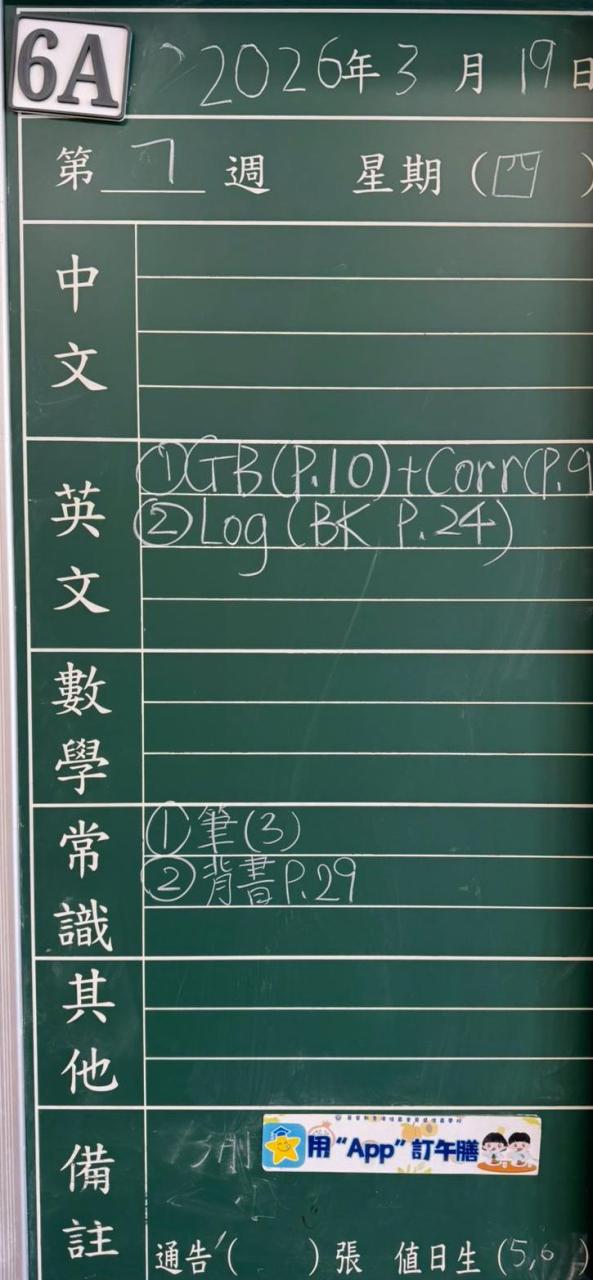 6A
2026年3月19日
第7週 星期(四)
中文
英文
①GB(P.10)+Corr(P.9
②Log(BK P.24)
數學
常識
①筆(3)
②背書P.29
其他
備註
用“App”訂午膳
通告( )張 值日生(5,6)